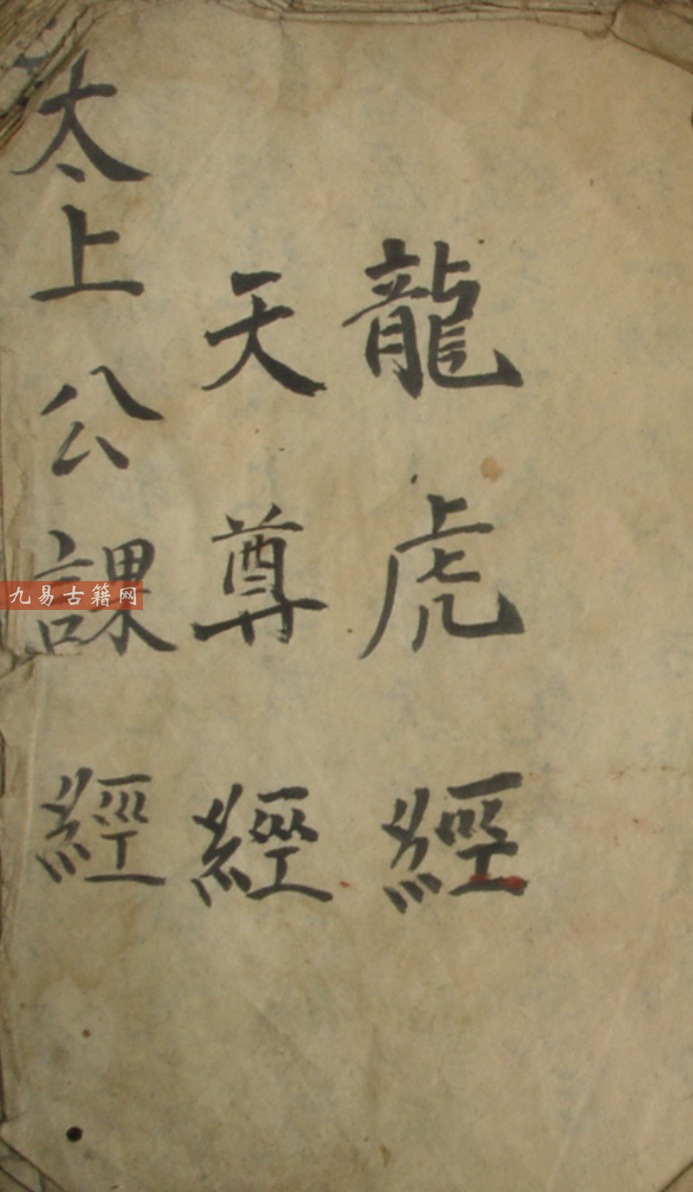 龍虎經
天尊經
太上公課經
九易古籍网